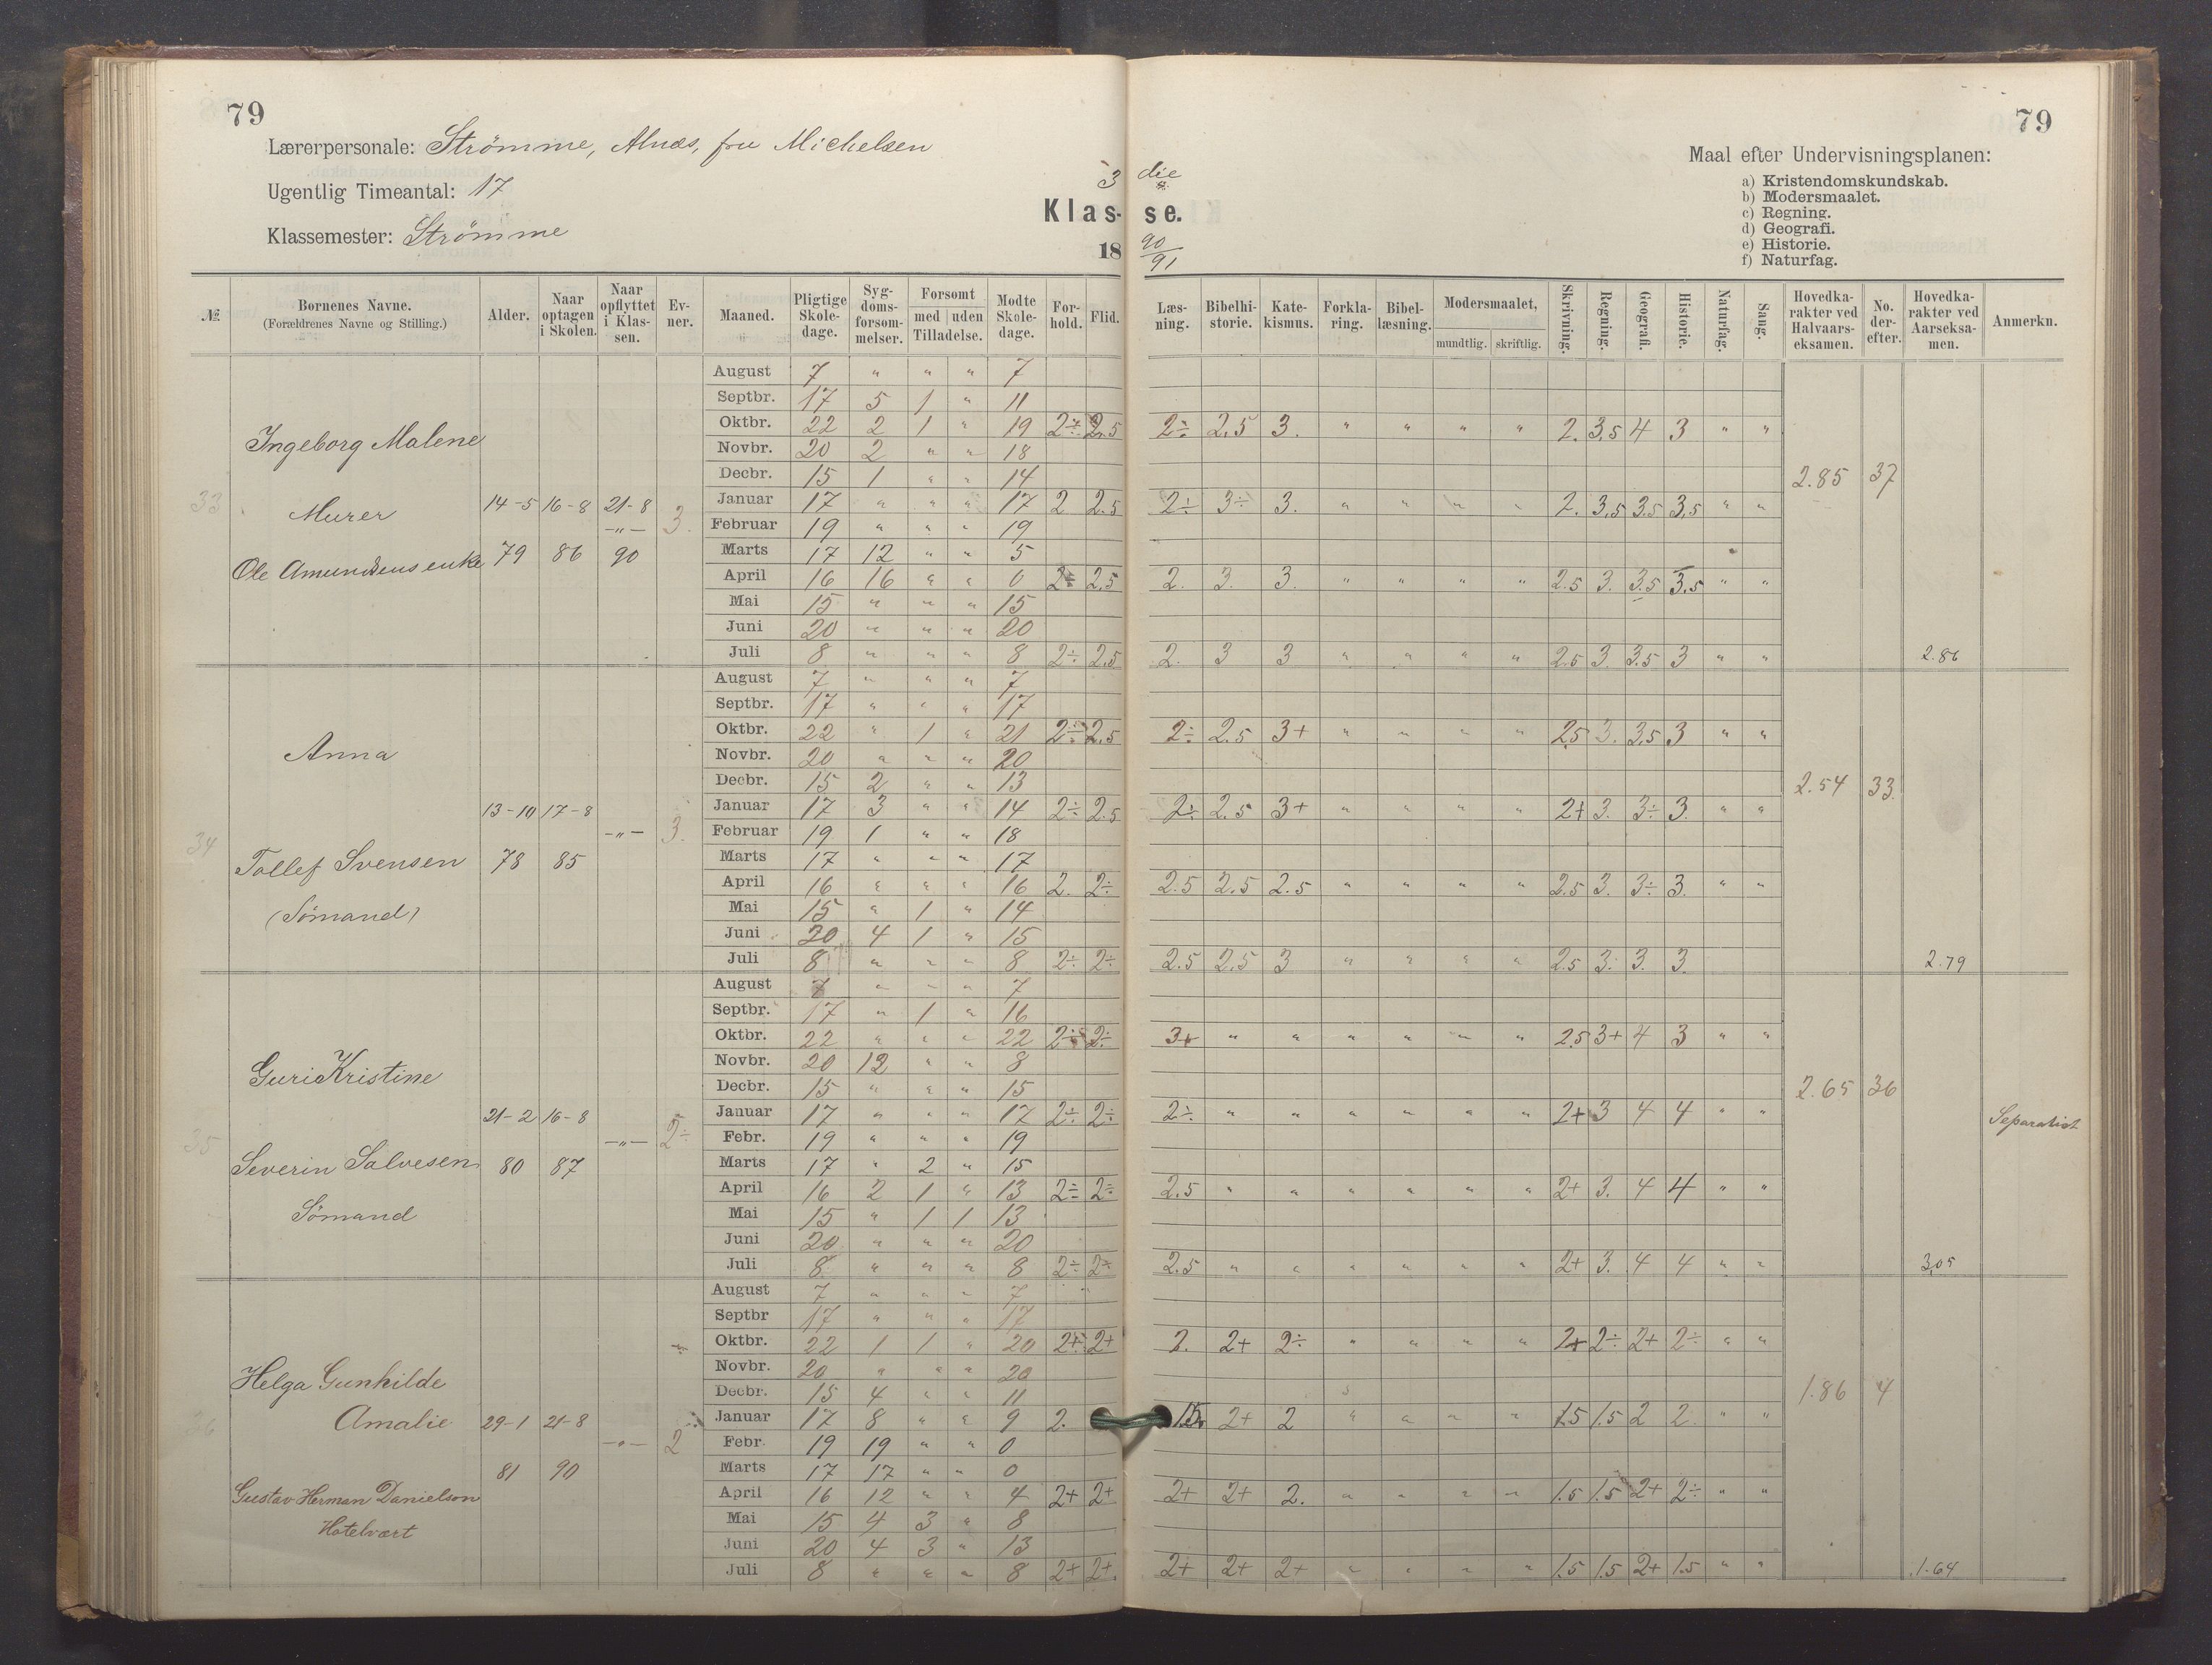 79
79
Lærerpersonale: Strömme, Alnæs, fru Michelsen
Ugentlig Timeantal: 17
Klassemester: Strömme
3 die
Klas- se.
18 90/91
Maal efter Undervisningsplanen:
a) Kristendomskundskab.
b) Modersmaalet.
c) Regning.
d) Geografi.
e) Historie.
f) Naturfag.
№ | Børnenes Navne. (Forældrenes Navne og Stilling.) | Alder. | Naar optagen i Skolen. | Naar opflyttet i Klassen. | Evner. | Maaned. | Pligtige Skoledage. | Sygdomsforsømmelser. | Forsømt med uden Tilladelse. | Mødte Skoledage. | Forhold. | Flid. | Læsning. | Bibelhistorie. | Katekismus. | Forklaring. | Bibellæsning. | Modersmaalet, mundtlig. skriftlig. | Skrivning. | Regning. | Geografi. | Historie. | Naturfag. | Sang. | Hovedkarakter ved Halvaarseksamen. | No. derefter. | Hovedkarakter ved Aarseksamen. | Anmerkn.
33
Ingeborg Malene
Murer
Ole Amundsens enke
14-5 79
16-8 86
21-8 -"- 90
3.
August 7 " " " 7
Septbr. 17 5 1 " 11
Oktbr. 22 2 1 " 19 2÷ 2.5 2÷ 2.5 3. " " " " 2. 3.5 4 3 " "
Novbr. 20 2 " " 18
Decbr. 15 1 " " 14
2.85 37
Januar 17 " " " 17 2 2.5 2÷ 3÷ 3. " " " " 2. 3.5 3.5 3.5 " "
Februar 19 " " " 19
Marts 17 12 " " 5
April 16 16 " " 0 2÷ 2.5 2. 3. 3. " " " " 2.5 3. 3.5 3.5 " "
Mai 15 " " " 15
Juni 20 " " " 20
Juli 8 " " " 8 2÷ 2.5 2. 3 3 " " " " 2.5 3. 3.5 3 " " 2.86
34
Anna
Tollef Svensen
(Sömand)
13-10 78
17-8 85
-"-
3.
August 7 " " " 7
Septbr. 17 " " " 17
Oktbr. 22 " 1 " 21 2÷ 2.5 2÷ 2.5 3+ " " " " 2.5 3. 3.5 3 " "
Novbr. 20 " " " 20
Decbr. 15 2 " " 13
2.54 33.
Januar 17 3 " " 14 2÷ 2.5 2÷ 2.5 3+ " " " " 2+ 3. 3÷ 3. " "
Februar 19 1 " " 18
Marts 17 " " " 17
April 16 " " " 16 2. 2÷ 2.5 2.5 2.5 " " " " 2.5 3. 3÷ 3. " "
Mai 15 " 1 " 14
Juni 20 4 1 " 15
Juli 8 " " " 8 2÷ 2÷ 2.5 2.5 3 " " " " 2.5 3. 3. 3. 2.79
35
Guri Kristine
Severin Salvesen
Sömand
21-2 80
16-8 87
-"-
2÷
August 7 " " " 7
Septbr. 17 " 1 " 16
Oktbr. 22 " " " 22 2÷ 2÷ 3+ " " " " " " 2.5 3+ 4 3 " "
Novbr. 20 12 " " 8
Decbr. 15 " " " 15
2.65 36
Januar 17 " " " 17 2÷ 2÷ 2÷ " " " " " " 2+ 3 4 4 " "
Separatist
Febr. 19 " " " 19
Marts 17 " 2 " 15
April 16 2 1 " 13 2÷ 2÷ 2.5 " " " " " " 2+ 3. 4 4 " "
Mai 15 " 1 1 13
Juni 20 " " " 20
Juli 8 " " " 8 2÷ 2÷ 2.5 " " " " " " 2+ 3. 4 4 " " 3.05
36
Helga Gunhilde
Amalie
Gustav Herman Danielson
Hotelvært
29-1 81
21-8 90
-"-
2
August 7 " " " 7
Septbr 17 " " " 17
Oktbr. 22 1 1 " 20 2+ 2+ 2. 2+ 2÷ " " " " 2+ 2÷ 2+ 2÷ " "
Novbr. 20 " " " 20
Decbr. 15 4 " " 11
1.86 4
Januar 17 8 " " 9 2. 1.5 2+ 2 " " " " 1.5 1.5 2 2. " "
Febr. 19 19 " " 0
Marts 17 17 " " 0
April 16 12 " " 4 2+ 2+ 2+ 2+ 2. " " " " 1.5 1.5 2+ 2÷ " "
Mai 15 4 3 " 8
Juni 20 4 3 " 13
Juli 8 " " " 8 2+ 2+. 2+ 2+ 2+ " " " " 1.5 1.5 2+ 1.5 " " 1.64